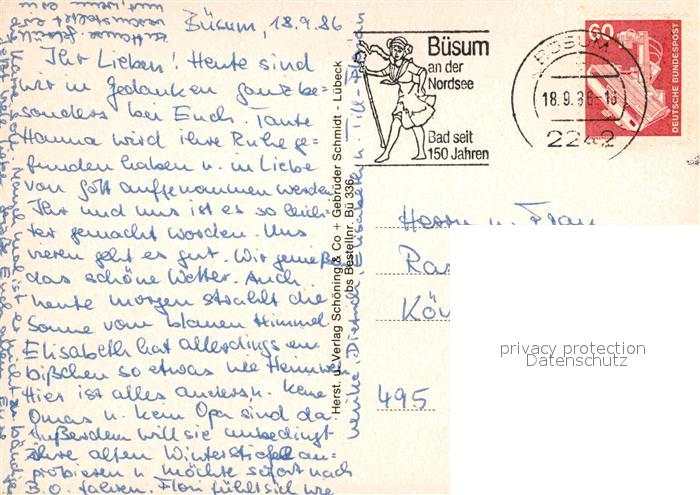 Büsum, 18.9.86
Ihr Lieben! Heute sind
wir in Gedanken ganz be-
sonders bei Euch. Tante
Hanna wird ihre Ruhe ge-
funden haben u. in Liebe
von Gott aufgenommen werden.
Ihr und uns ist es so leich-
ter gemacht worden. Uns
vieren geht es gut. Wir genießen
das schöne Wetter. Auch
heute morgen strahlt die
Sonne vom blauen Himmel
Elisabeth hat allerdings ein
bißchen so etwas wie Heimweh
Hier ist alles anders. Keine
Omas u. kein Opa sind da
Außerdem will sie unbedingt
ihre alten Winterstiefel an-
probieren u. möchte sofort nach
B.O. fahren. Flori fühlt sich wie
Elisabeth u. Till-Florian
Herst. u. Verlag Schöning & Co + Gebrüder Schmidt - Lübeck
Bestellnr. Bü 336
Büsum
an der
Nordsee
Bad seit
150 Jahren
BÜSUM
18.9.86-16
2242
60
DEUTSCHE BUNDESPOST
Herrn u. Frau
495
privacy protection
Datenschutz